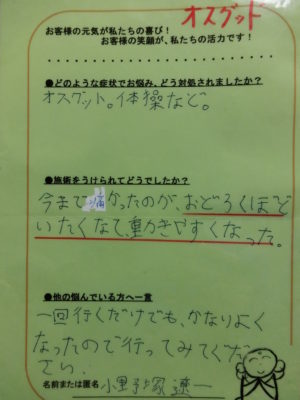 オスグッド
お客様の元気が私たちの喜び！
お客様の笑顔が、私たちの活力です！
●どのような症状でお悩み、どう対処されましたか？
オスグット。体操など。
●施術をうけられてどうでしたか？
今まで痛かったのが、おどろくほど
いたくなくて、動きやすくなった。
●他の悩んでいる方へ一言
一回行くだけでも、かなりよく
なったので行ってみてくだ
さい。
名前または匿名 小野塚 遼一